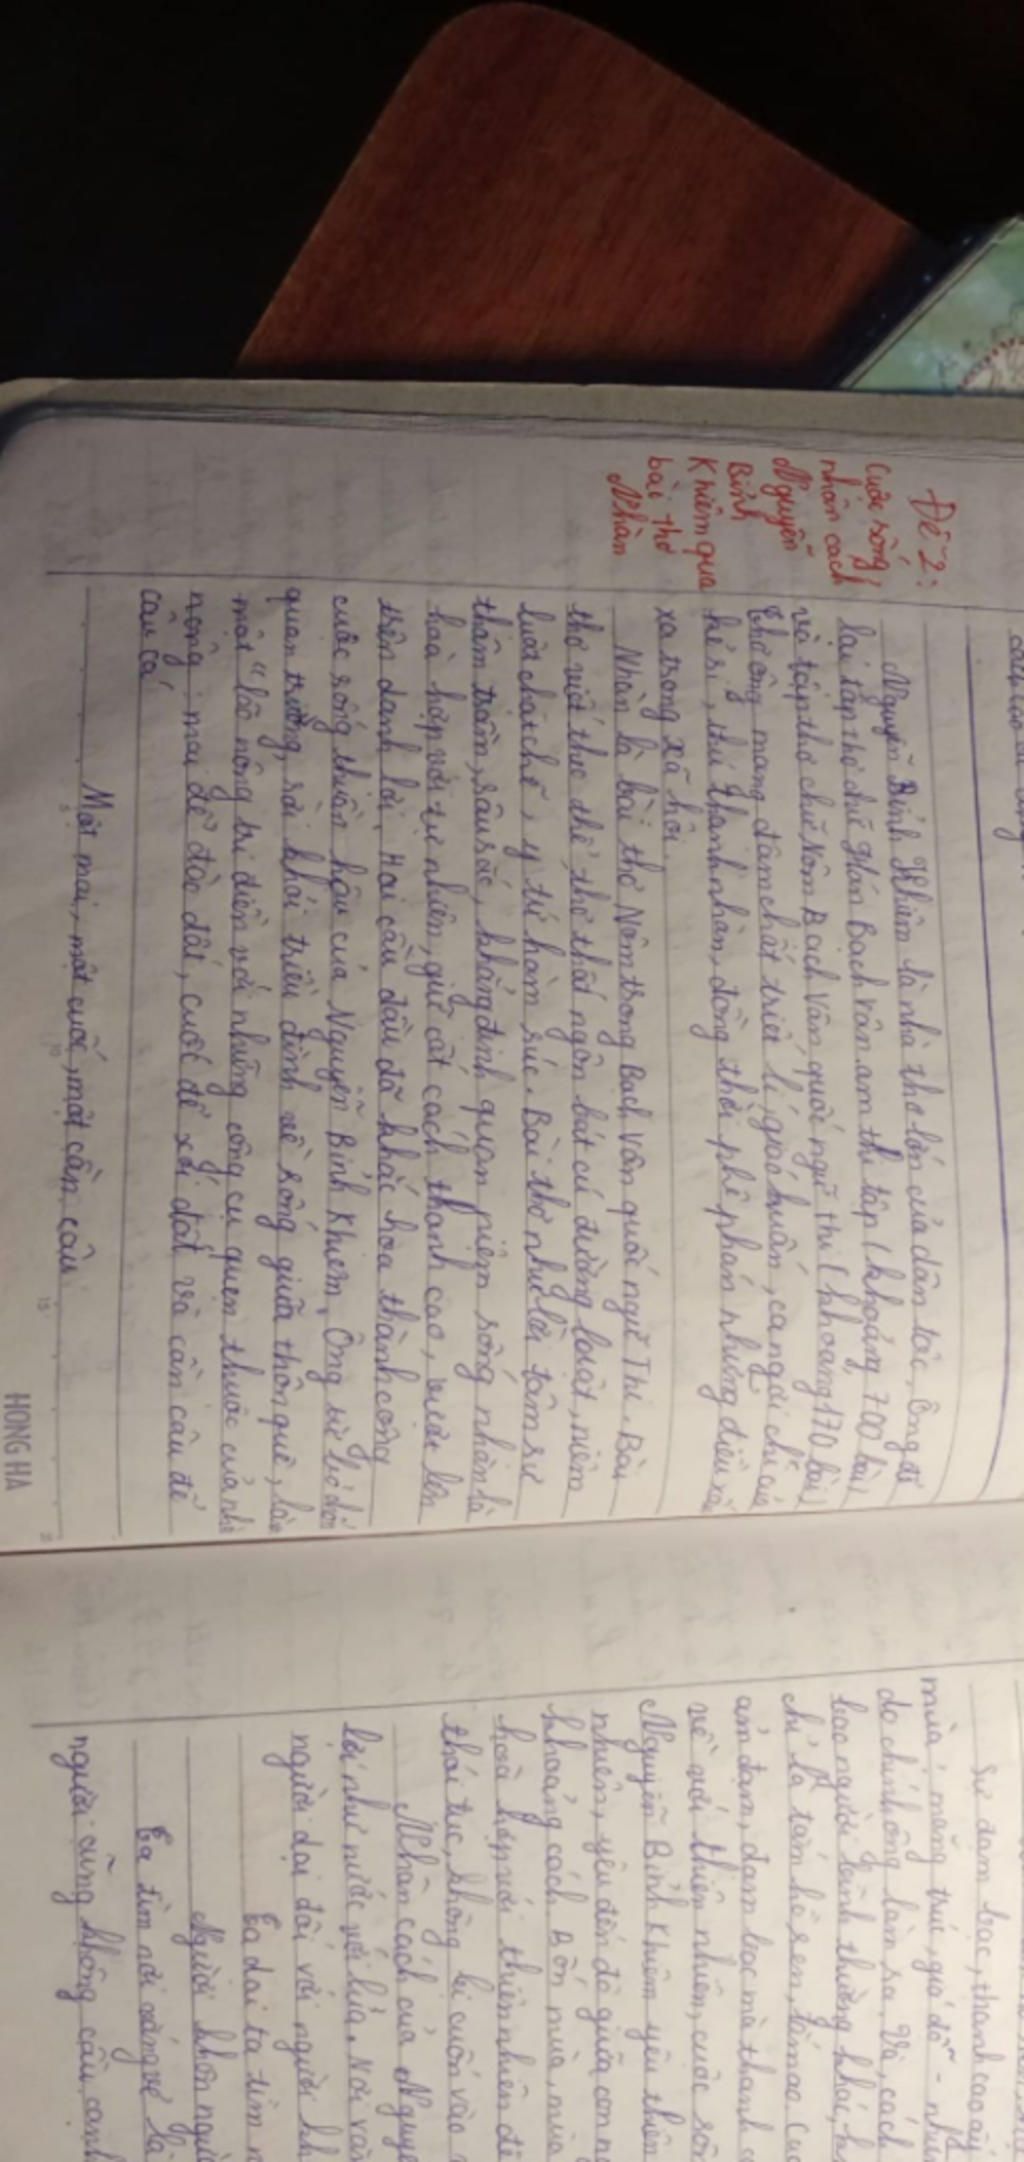 Đề 2:
cuộc sống,
nhân cách
Nguyễn
Bỉnh
Khiêm qua
bài thơ
Nhàn
Nguyễn Bỉnh Khiêm là nhà thơ lớn của dân tộc, Ông để
lại tập thơ chữ Hán Bạch Vân am thi tập (khoảng 700 bài)
và tập thơ chữ Nôm Bạch Vân quốc ngữ thi (khoảng 170 bài)
thơ ông mang đậm chất triết lí, giáo huấn, ca ngợi chí của
kẻ sĩ, thú thanh nhàn, đồng thời phê phán những điều xấu
xa trong xã hội.
Nhàn là bài thơ Nôm trong Bạch Vân quốc ngữ Thi. Bài
thơ viết theo thể thơ thất ngôn bát cú đường luật, niêm
luật chặt chẽ, ý tứ hàm súc. Bài thơ như lời tâm sự
thâm trầm, sâu sắc, khẳng định quan niệm sống nhàn là
hoà hợp với tự nhiên, giữ cốt cách thanh cao, vượt lên
trên danh lợi. Hai câu đầu đã khắc hoạ thành công
cuộc sống thuần hậu của Nguyễn Bỉnh Khiêm. Ông từ bỏ chốn
quan trường, rời khỏi triều đình về sống giữa thôn quê, làm
một "lão nông tri điền với những công cụ quen thuộc của nhà
nông: mai để đào đất, cuốc để xới đất và cần câu để
câu cá
Một mai, một cuốc, một cần câu
HONG HA
Sự đạm bạc, thanh cao ấy
mùa: măng trúc, giá đỗ - những
do chính ông làm ra. Và, cách
bao người bình thường khác,
chỉ là tắm hồ sen, tắm ao. Cuộc
ảm đạm, đạm bạc mà thanh
về với thiên nhiên, cuộc sống
Nguyễn Bỉnh Khiêm yêu thiên
nhiên, yêu đến độ giữa con
khoảng cách. Bốn mùa, mùa
hoà hợp với thiên nhiên để
thói tục, không bị cuốn vào
Nhân cách của Nguyễn
lợi như nước với lửa. Nơi
người dại đối với người
Ta dại ta tìm
Người khôn người
Ta tìm nơi vắng vẻ là
người cũng không cầu cạnh